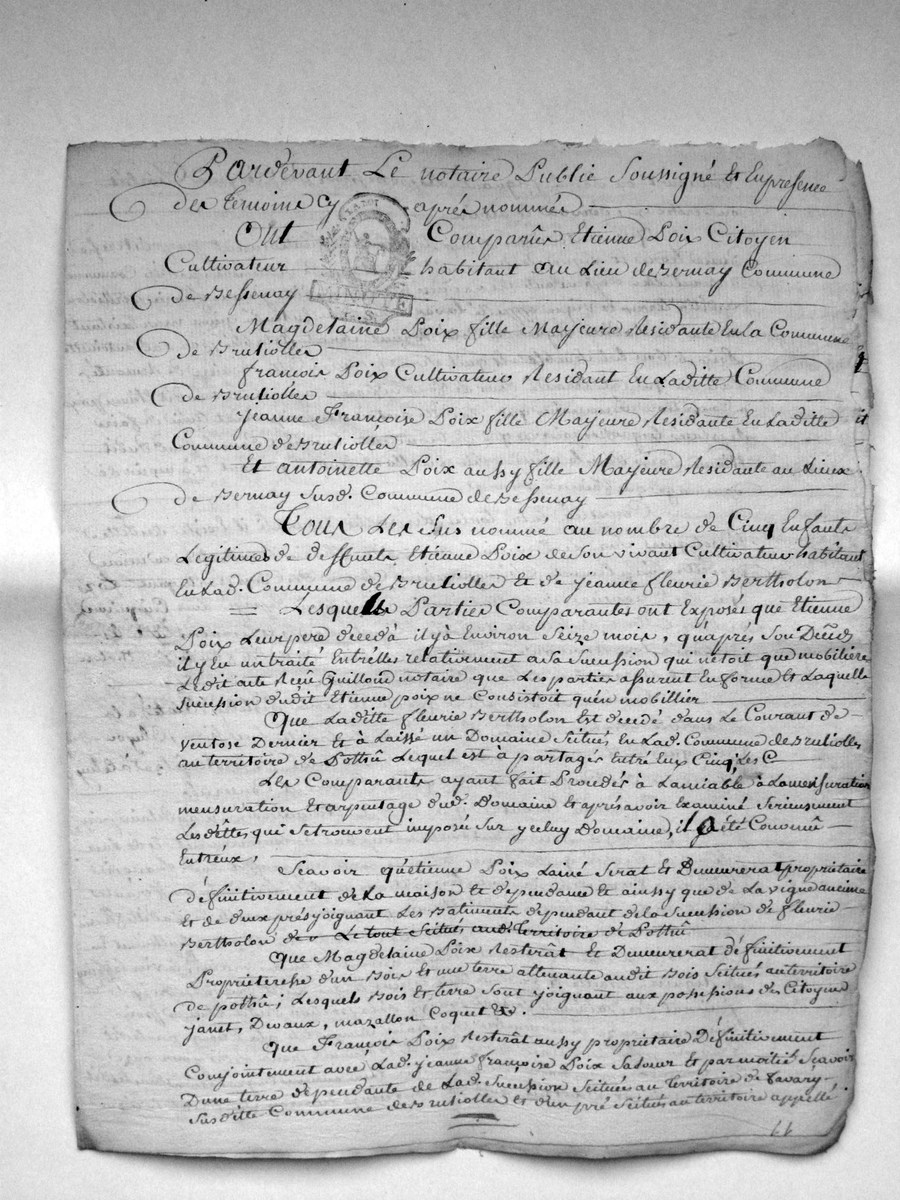 Pardevant Le notaire Public Soussigné et En presence
des temoins cy après nommés
Ont Comparûs Etienne Poix Citoyen
Cultivateur habitant au Lieu de Bernay Commune
de Bessenay
MINUTE
Magdelaine Poix fille Majeure Residante En La Commune
de Brusiolles
françois Poix Cultivateur Residant En Laditte Commune
de Brusiolles
jeanne Françoise Poix fille Majeure Residante En Laditte
Commune de Brusiolles
Et antoinette Poix aussy fille Majeure Residante au Lieux
de Bernay Susd. Commune de Bessenay
Tous Les Sus nommé au nombre de Cinq Enfants
Legitimes de deffunts Etienne Poix de Son vivant Cultivateur habitant
En Lad. Commune de Brusiolles et de jeanne fleurie Bertholon
= Lesquelles Parties Comparantes ont Exposés que Etienne
Poix Leur pere décedà il y à Environ Seize mois, qu'après Son Décés
il y Eu un traité Entr'elles relativement a Sa Sucession qui n'etoit que mobilière
Ledit acte Reçu Guilloud notaire que Les parties assurent En forme et Laquelle
Sucession dudit Etienne poix ne Consistoit qu'en mobillier
Que Laditte fleurie Bertholon Est décedé dans Le Courant de
ventose Dernier Et à Laissé un Domaine Scitués En Lad. Commune de Brusiolles
au territoire de Pothû Lequel est à partager Entre Eux Cinq, Les C
Les Comparants ayant fait Proceder à Lamiable à La mensuration
mensuration Et arpentage dud. Domaine Et après avoir Examiné Serieusement
Les dêttes qui Se trouvent imposée Sur yceluy Domaine, il a été Convenû
Entreux,
Scavoir qu'etienne Poix Lainé Serat Et Demeurerat propriétaire
définitivement de La maison Et dependance Et ainssy que de La vigne ancienne
Et de deux prés joignant Les Batiments dependant de la Sucession de fleurie
Bertholon de Le tout Scitués audit Territoire de Pothû
Que Magdelaine Poix Resterât Et Demeurerat définitivement
Proprietersse d'un Bois Et une terre attenante audit Bois Scitués au territoire
de pothû; Lesquels Bois Et terre Sont joignant aux possessions des Citoyens
janet, Devaux, mazallon Coquet &c.
Que François Poix Resterât aussy proprietaire Définitivement
Conjointement avec Lad. jeanne françoise Poix Sa Sœur Et par moitié Scavoir
D'une terre dependante de Lad. Sucession Scitués au territoire de Favary
Susditte Commune de Brusiolles Et d'un pré Scitués au territoire appellé